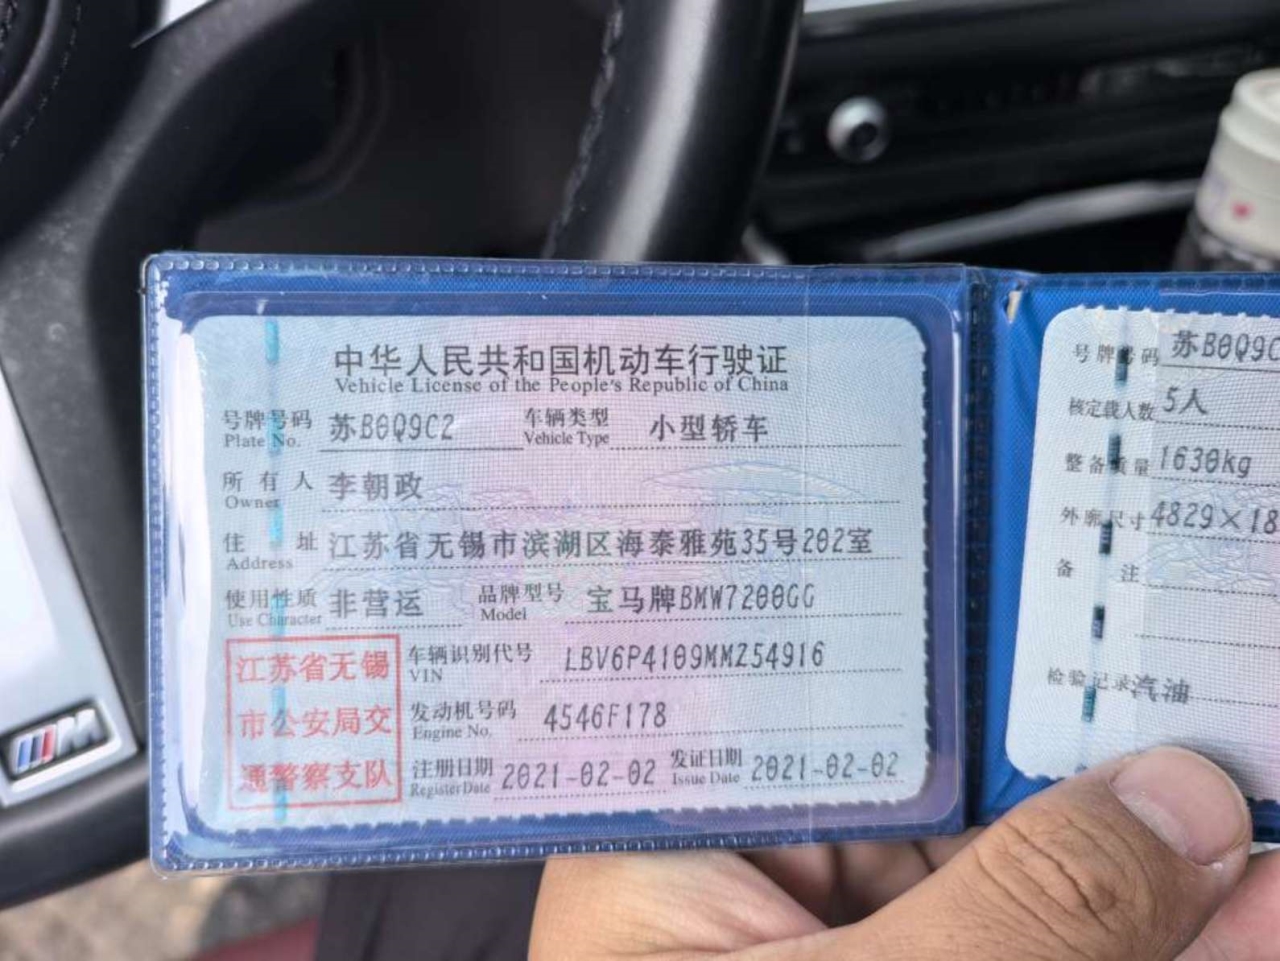 中华人民共和国机动车行驶证
Vehicle License of the People's Republic of China
号牌号码 苏B0Q9C2 车辆类型 小型轿车
Plate No. Vehicle Type
所有人 李朝政
Owner
住址 江苏省无锡市滨湖区海泰雅苑35号202室
Address
使用性质 非营运 品牌型号 宝马牌BMW7200GG
Use Character Model
车辆识别代号 LBV6P4109MMZ54916
VIN
发动机号码 4546F178
Engine No.
注册日期 2021-02-02 发证日期 2021-02-02
Register Date Issue Date
江苏省无锡
市公安局交
通警察支队
号牌号码 苏B0Q9C
核定载人数 5人
整备质量 1630kg
外廓尺寸 4829×18
备注
检验记录 汽油
M